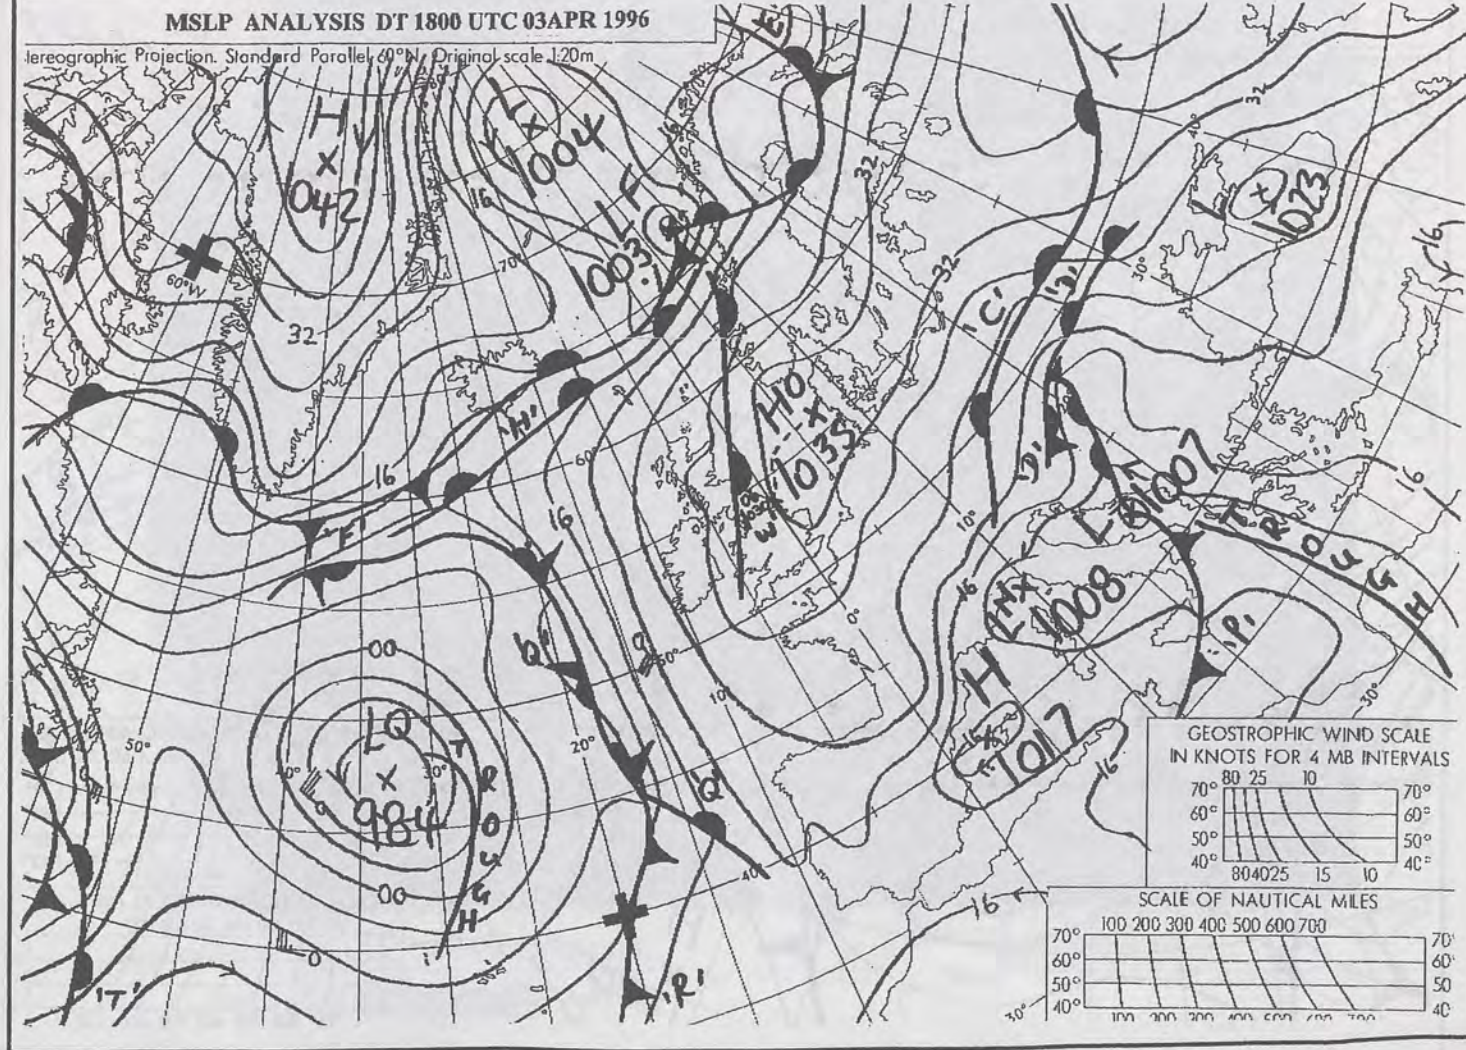 MSLP ANALYSIS DT 1800 UTC 03APR 1996
tereographic Projection. Standard Parallel 60°N. Original scale 1:20m
E
H
×
042
L
×
1004
16
16
L F
1003
32
32
32
L
×
1023
16
60°W
70°
32
32
'C'
'D'
30°
40°
HO
×
1035
'H'
60°
16
'F'
16
'D'
L
1007
16
10°
TROUGH
W
16
LN×
1008
'P'
0°
00
'Q'
50°
H
1017
16
30°
10°
LQ
×
984
TROUGH
50°
40°
30°
20°
'Q'
40°
00
0
'T'
'R'
16
30°
GEOSTROPHIC WIND SCALE
IN KNOTS FOR 4 MB INTERVALS
80 25 10
70° 70°
60° 60°
50° 50°
40° 40°
80 40 25 15 10
SCALE OF NAUTICAL MILES
100 200 300 400 500 600 700
70° 70°
60° 60°
50° 50
40° 40
100 200 300 400 500 600 700